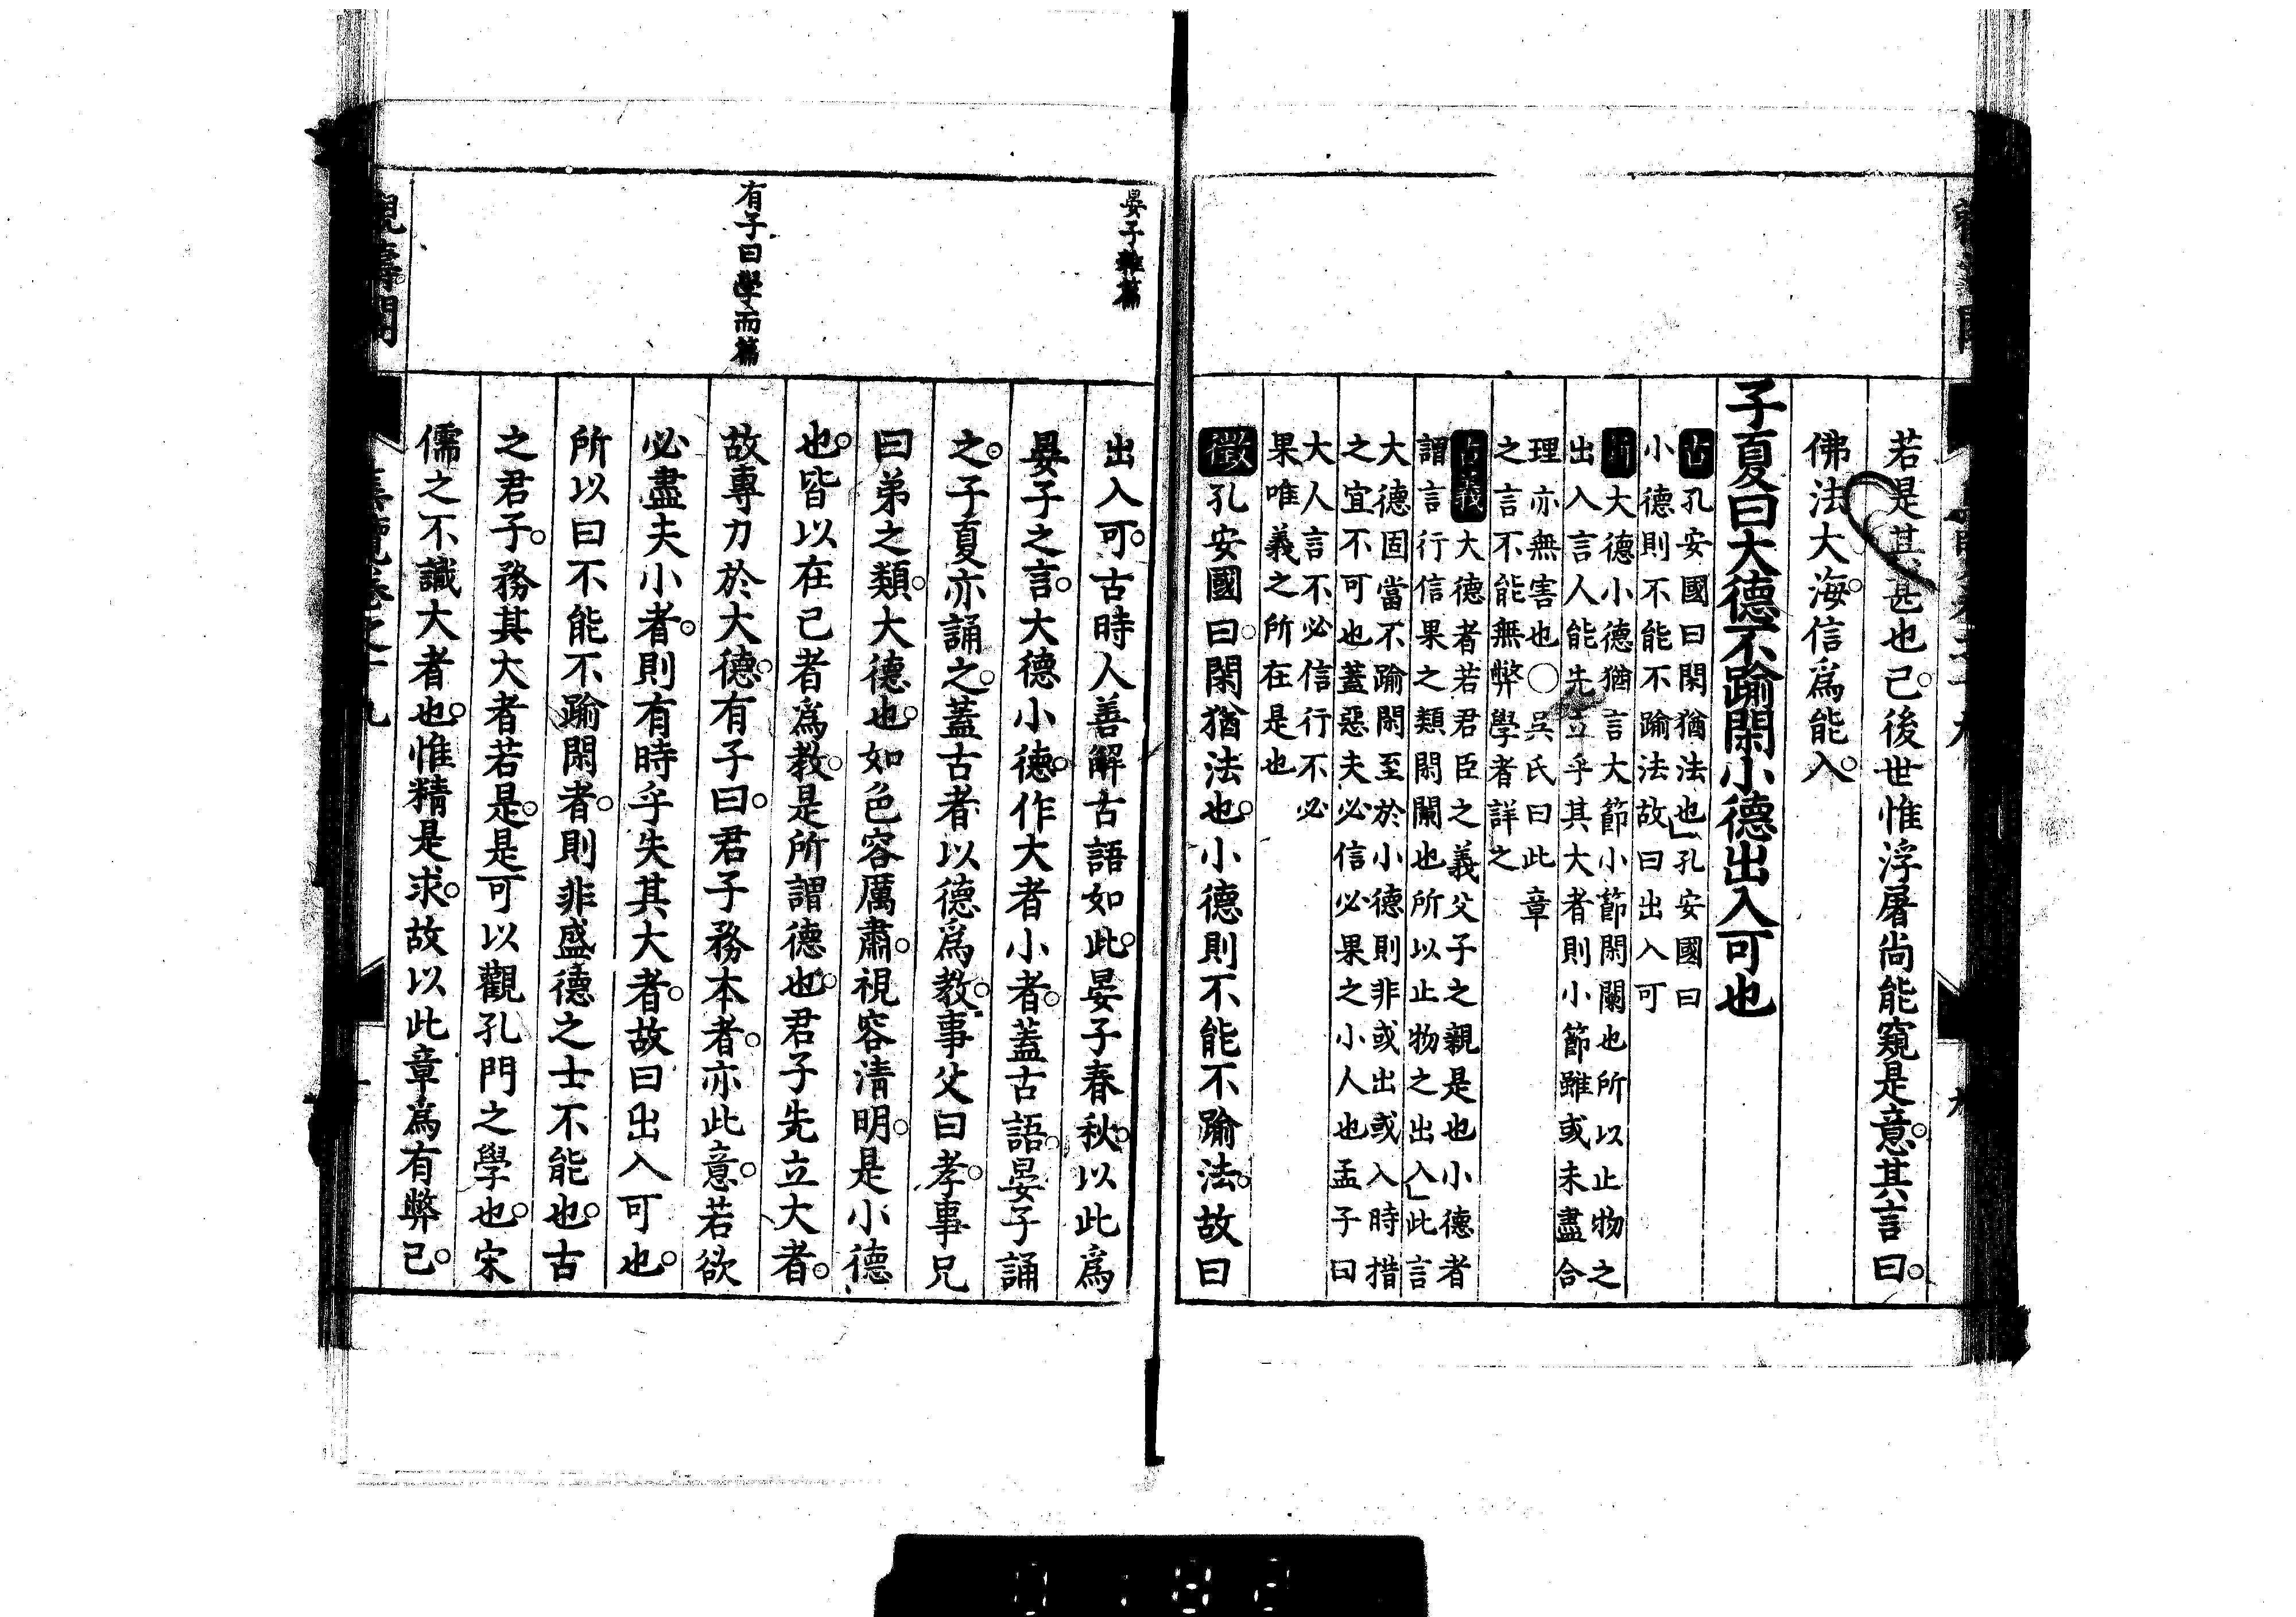 若是其甚也已後世惟浮屠尚能窺是意其言曰
佛法大海信爲能入
子夏曰大德不踰閑小德出入可也
古孔安國曰閑猶法也孔安國曰
小德則不能不踰法故曰出入可
大德小德猶言大節小節閑闌也所以止物之
出入言人能先立乎其大者則小節雖或未盡合
理亦無害也○吳氏曰此章
之言不能無弊學者詳之
古義大德者若君臣之義父子之親是也小德者
謂言行信果之類閑闌也所以止物之出入此言
大德固當不踰閑至於小德則非或出或入時措
之宜不可也蓋惡夫必信必果之小人也孟子曰
大人言不必信行不必
果唯義之所在是也
徵孔安國曰閑猶法也小德則不能不踰法故曰
晏子雜篇
出入可古時人善解古語如此晏子春秋以此爲
晏子之言大德小德作大者小者蓋古語晏子誦
之子夏亦誦之蓋古者以德爲教事父曰孝事兄
曰弟之類大德也如色容厲肅視容清明是小德
也皆以在己者爲教是所謂德也君子先立大者
有子曰學而篇
故專力於大德有子曰君子務本者亦此意若欲
必盡夫小者則有時乎失其大者故曰出入可也
所以曰不能不踰閑者則非盛德之士不能也古
之君子務其大者若是是可以觀孔門之學也宋
儒之不識大者也惟精是求故以此章爲有弊已